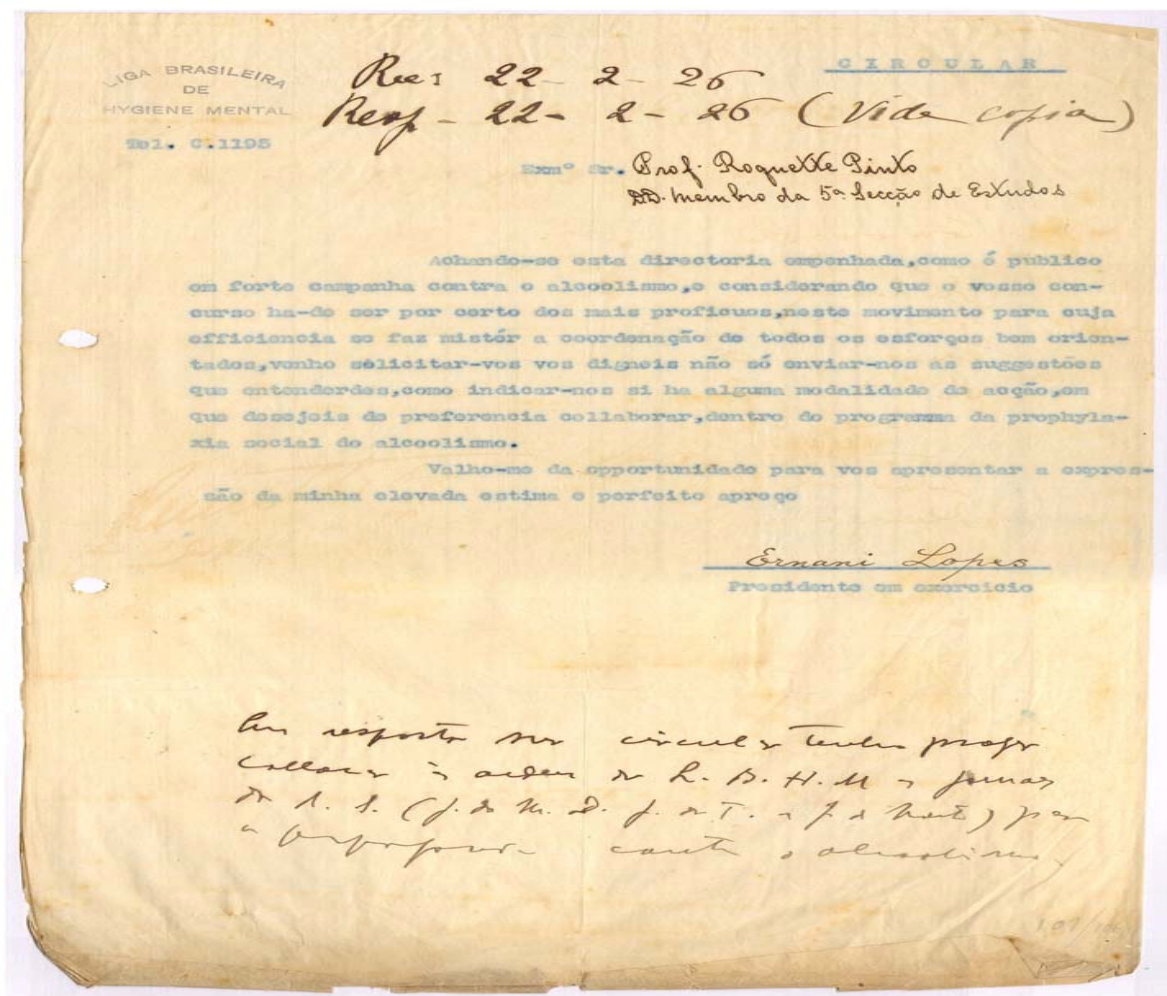 LIGA BRASILEIRA
DE
HYGIENE MENTAL
Tel. C.1195
CIRCULAR
Rec: 22 - 2 - 26
Resp - 22 - 2 - 26 (Vide copia)
Exmº Sr. Prof. Roquette Pinto
DD. Membro da 5ª Secção de Estudos
Achando-se esta directoria empenhada,como é publico
em forte campanha contra o alcoolismo,e considerando que o vosso con-
curso ha-de ser por certo dos mais proficuos,neste movimento para cuja
efficiencia se faz mistér a coordenação de todos os esforços bem orien-
tados,venho solicitar-vos vos digneis não só enviar-nos as suggestões
que entenderdes,como indicar-nos si ha alguma modalidade de acção,em
que desejeis de preferencia collaborar,dentro do programma da prophyla-
xia social do alcoolismo.
Valho-me da opportunidade para vos apresentar a expres-
são da minha elevada estima e perfeito apreço
Ernani Lopes
Presidente em exercicio
Em resposta circular tenho
collocar L. B. H. M
(J. do M. D. J. da T.
contra o alcoolismo